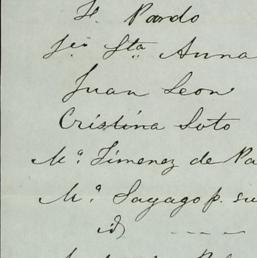 F. Pardo
Sta. Anna
Juan Leon
Cristina Soto
Ma. Jimenez de Pa
Ma. Sayago p. su
id ----